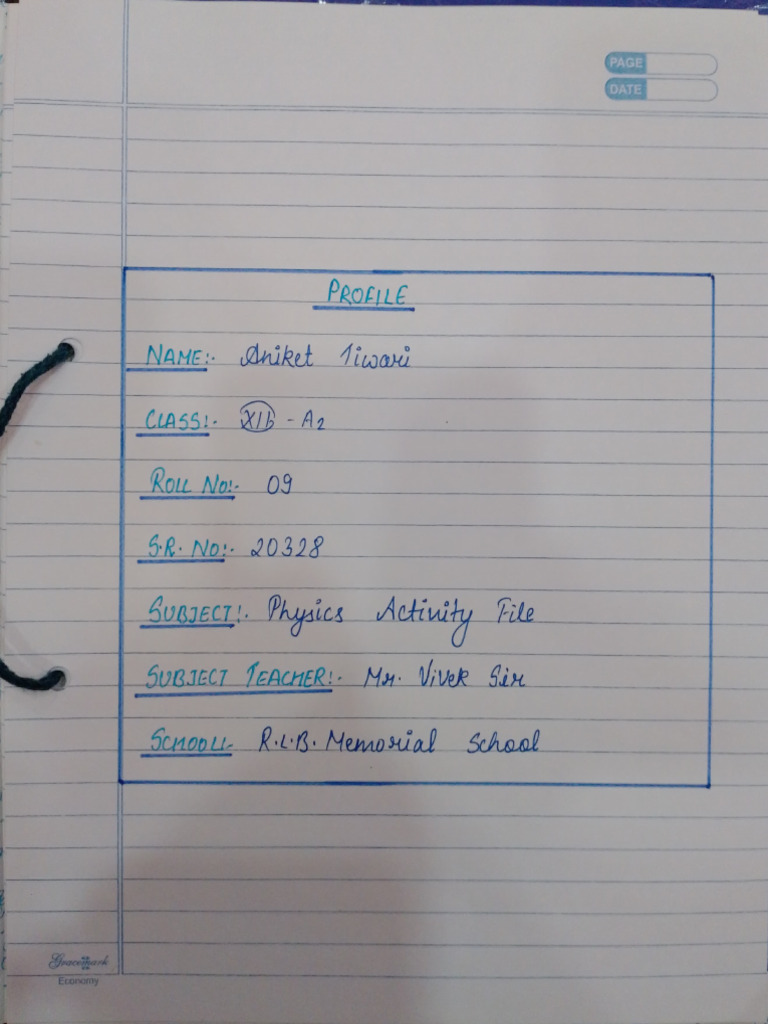 PAGE
DATE
PROFILE
NAME:- Aniket Tiwari
CLASS:- XIth - A2
ROLL NO:- 09
S.R. NO:- 20328
SUBJECT:- Physics Activity File
SUBJECT TEACHER:- Mr. Vivek Sir
SCHOOL:- R.L.B. Memorial School
Gracemark
Economy